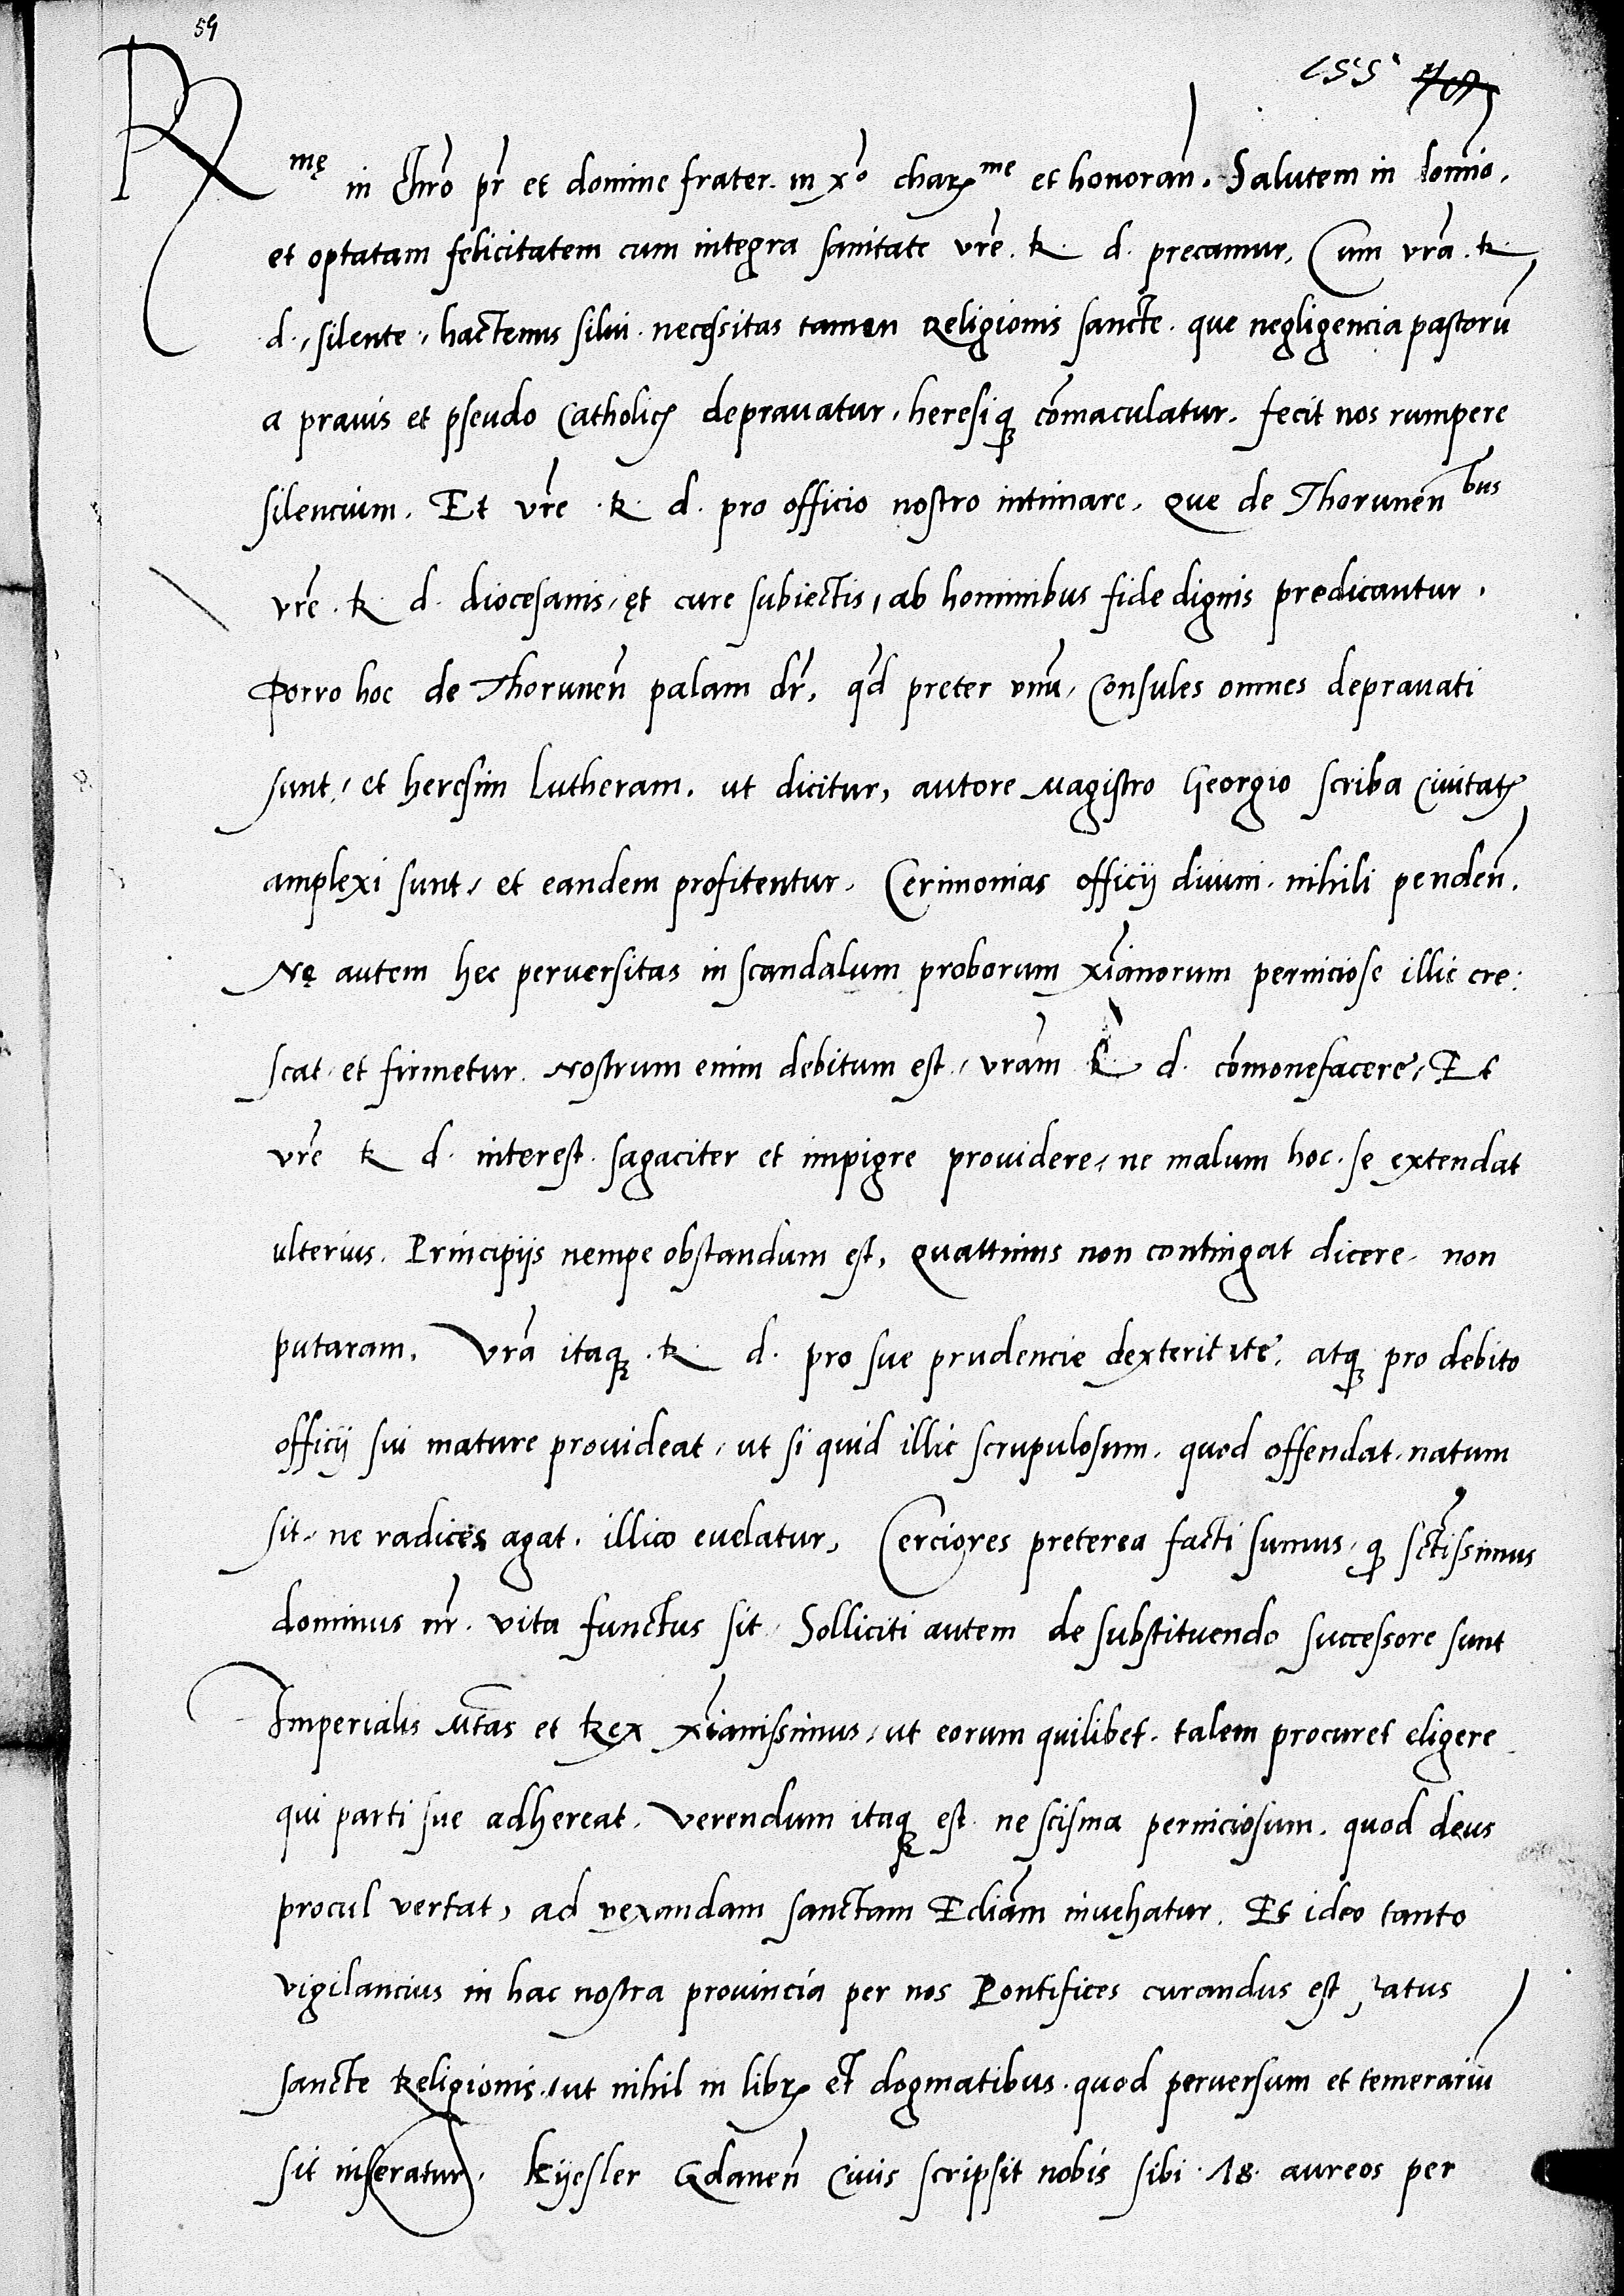 59
R mę in Chr̃o pr̃ et domine frater in xº charꝭme et honoran̄. Salutem in domĩo,
et optatam felicitatem cum integra sanitate vr̃e. R. d. precamur, Cum vr̃a. R.
d., silente, hactenus silui. necessitas tamen Religionis sancte. que negligencia pastorũ
a prauis et pseudo Catholicꝭ deprauatur, heresiqꝫ cõmaculatur. fecit nos rumpere
silencium. Et vr̃e. R. d. pro officio nostro intimare, que de Thorunen̄bus
vr̃e. R. d. diocesanis, et cure subiectis, ab hominibus fide dignis predicantur.
Porro hoc de Thorunen̄ palam dr̃, qd̃ preter vnũ, Consules omnes deprauati
sunt, et heresim Lutheram. ut dicitur, autore Magistro Georgio scriba Ciuitatꝭ
amplexi sunt, et eandem profitentur, Cerimonias officij diuini. nihili penden̄.
Ne autem hec peruersitas in scandalum proborum xĩanorum perniciose illic cre:
scat et firmetur. Nostrum enim debitum est, vrãm R d. cõmonefacere, Et
vr̃e R d. interest. sagaciter et impigre prouidere, ne malum hoc. se extendat
ulterius. Principijs nempe obstandum est, quattinus non contingat dicere, non
putaram. Vr̃a itaqꝫ. R. d. pro sue prudencie dexteritate, atqꝫ pro debito
officij sui mature prouideat, ut si quid illic scrupulosum. quod offendat. natum
sit, ne radices agat. illico euelatur, Cerciores preterea facti sumus, qꝫ sctĩssimus
dominus nr̃. vita functus sit, Solliciti autem de substituendo successore sunt
Imperialis Mtãs et Rex xĩanissimus, ut eorum quilibet. talem procuret eligere
qui parti sue adhereat. Verendum itaqꝫ est. ne scisma perniciosum. quod deus
procul vertat, ad vexandam sanctam Ecliãm inuehatur. Et ideo tanto
vigilancius in hac nostra prouincia per nos Pontifices curandus est status
sancte Religionis, ut nihil in librꝭ et dogmatibus. quod peruersum et temerariũ
sit inseratur. Kyesler Gdanen̄ Ciuis scripsit nobis sibi. 18. aureos per